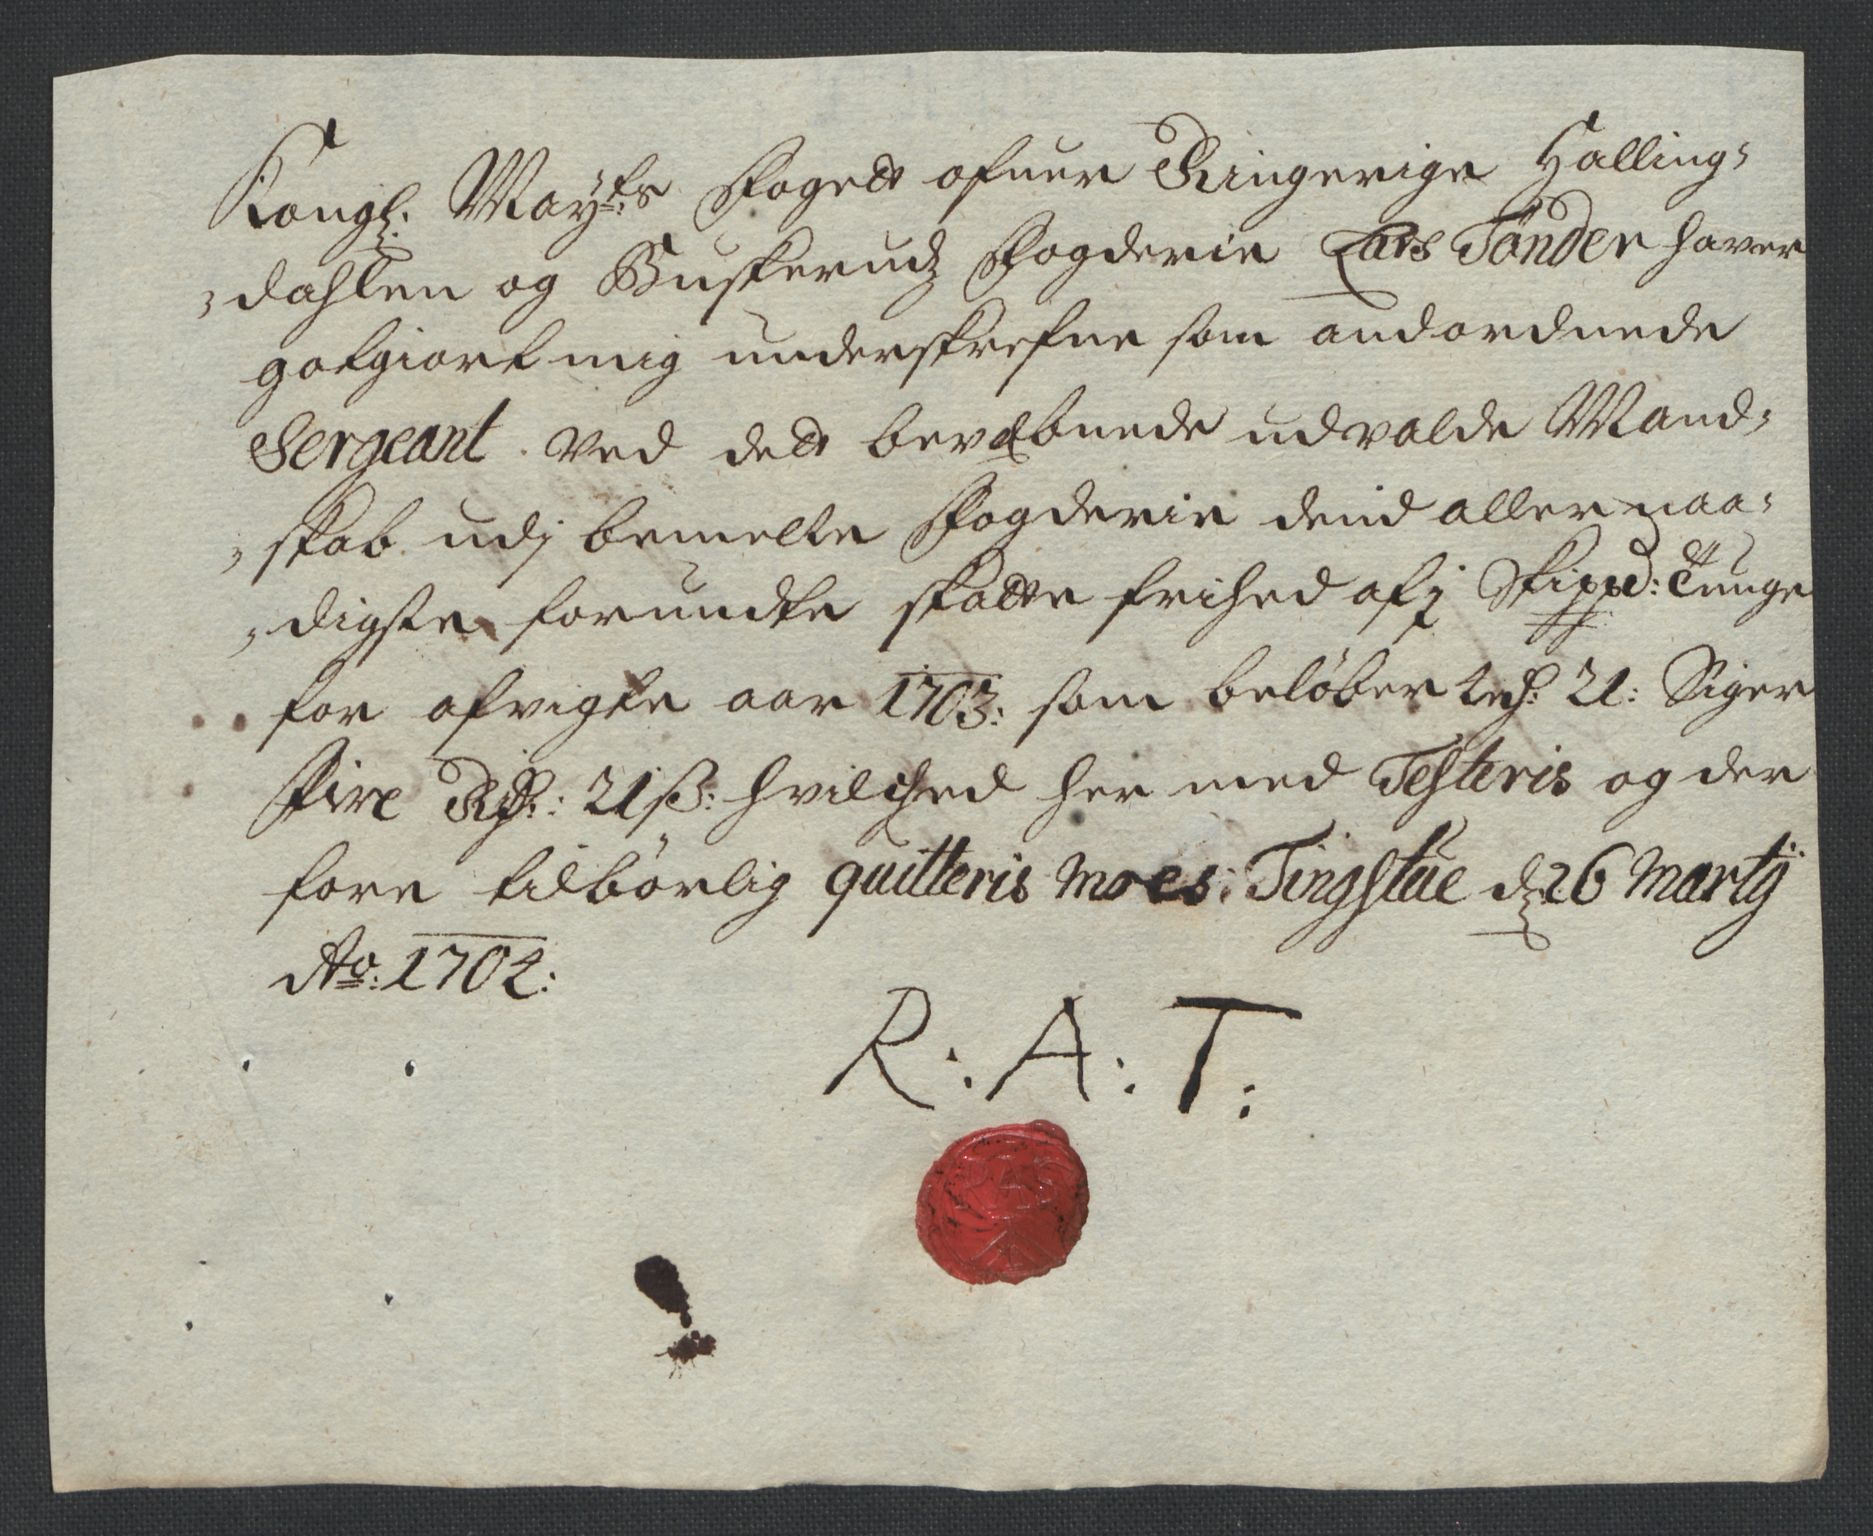 Kongl: May:ts Fogett ofuer Ringerige Halling-
dahlen og Buskerudz Fogderie Lars Tønder haver
gotgiort mig underskrefne som andordnede
Sergeant ved dett bevæbnede udvalde Mand-
skab udj bemelte Fogderie dend allernaa-
digste forundte skatte frihed af j Skippd: Tunge
for afvigte aar 1703: som beløber 4 rdr: 21: Siger
Fire Rdr: 21 ß: hvilched her med Testeris og der
fore tilbørlig quitteris Moes: Tingstue d: 26 Martij
Ao: 1704:
R: A: T: